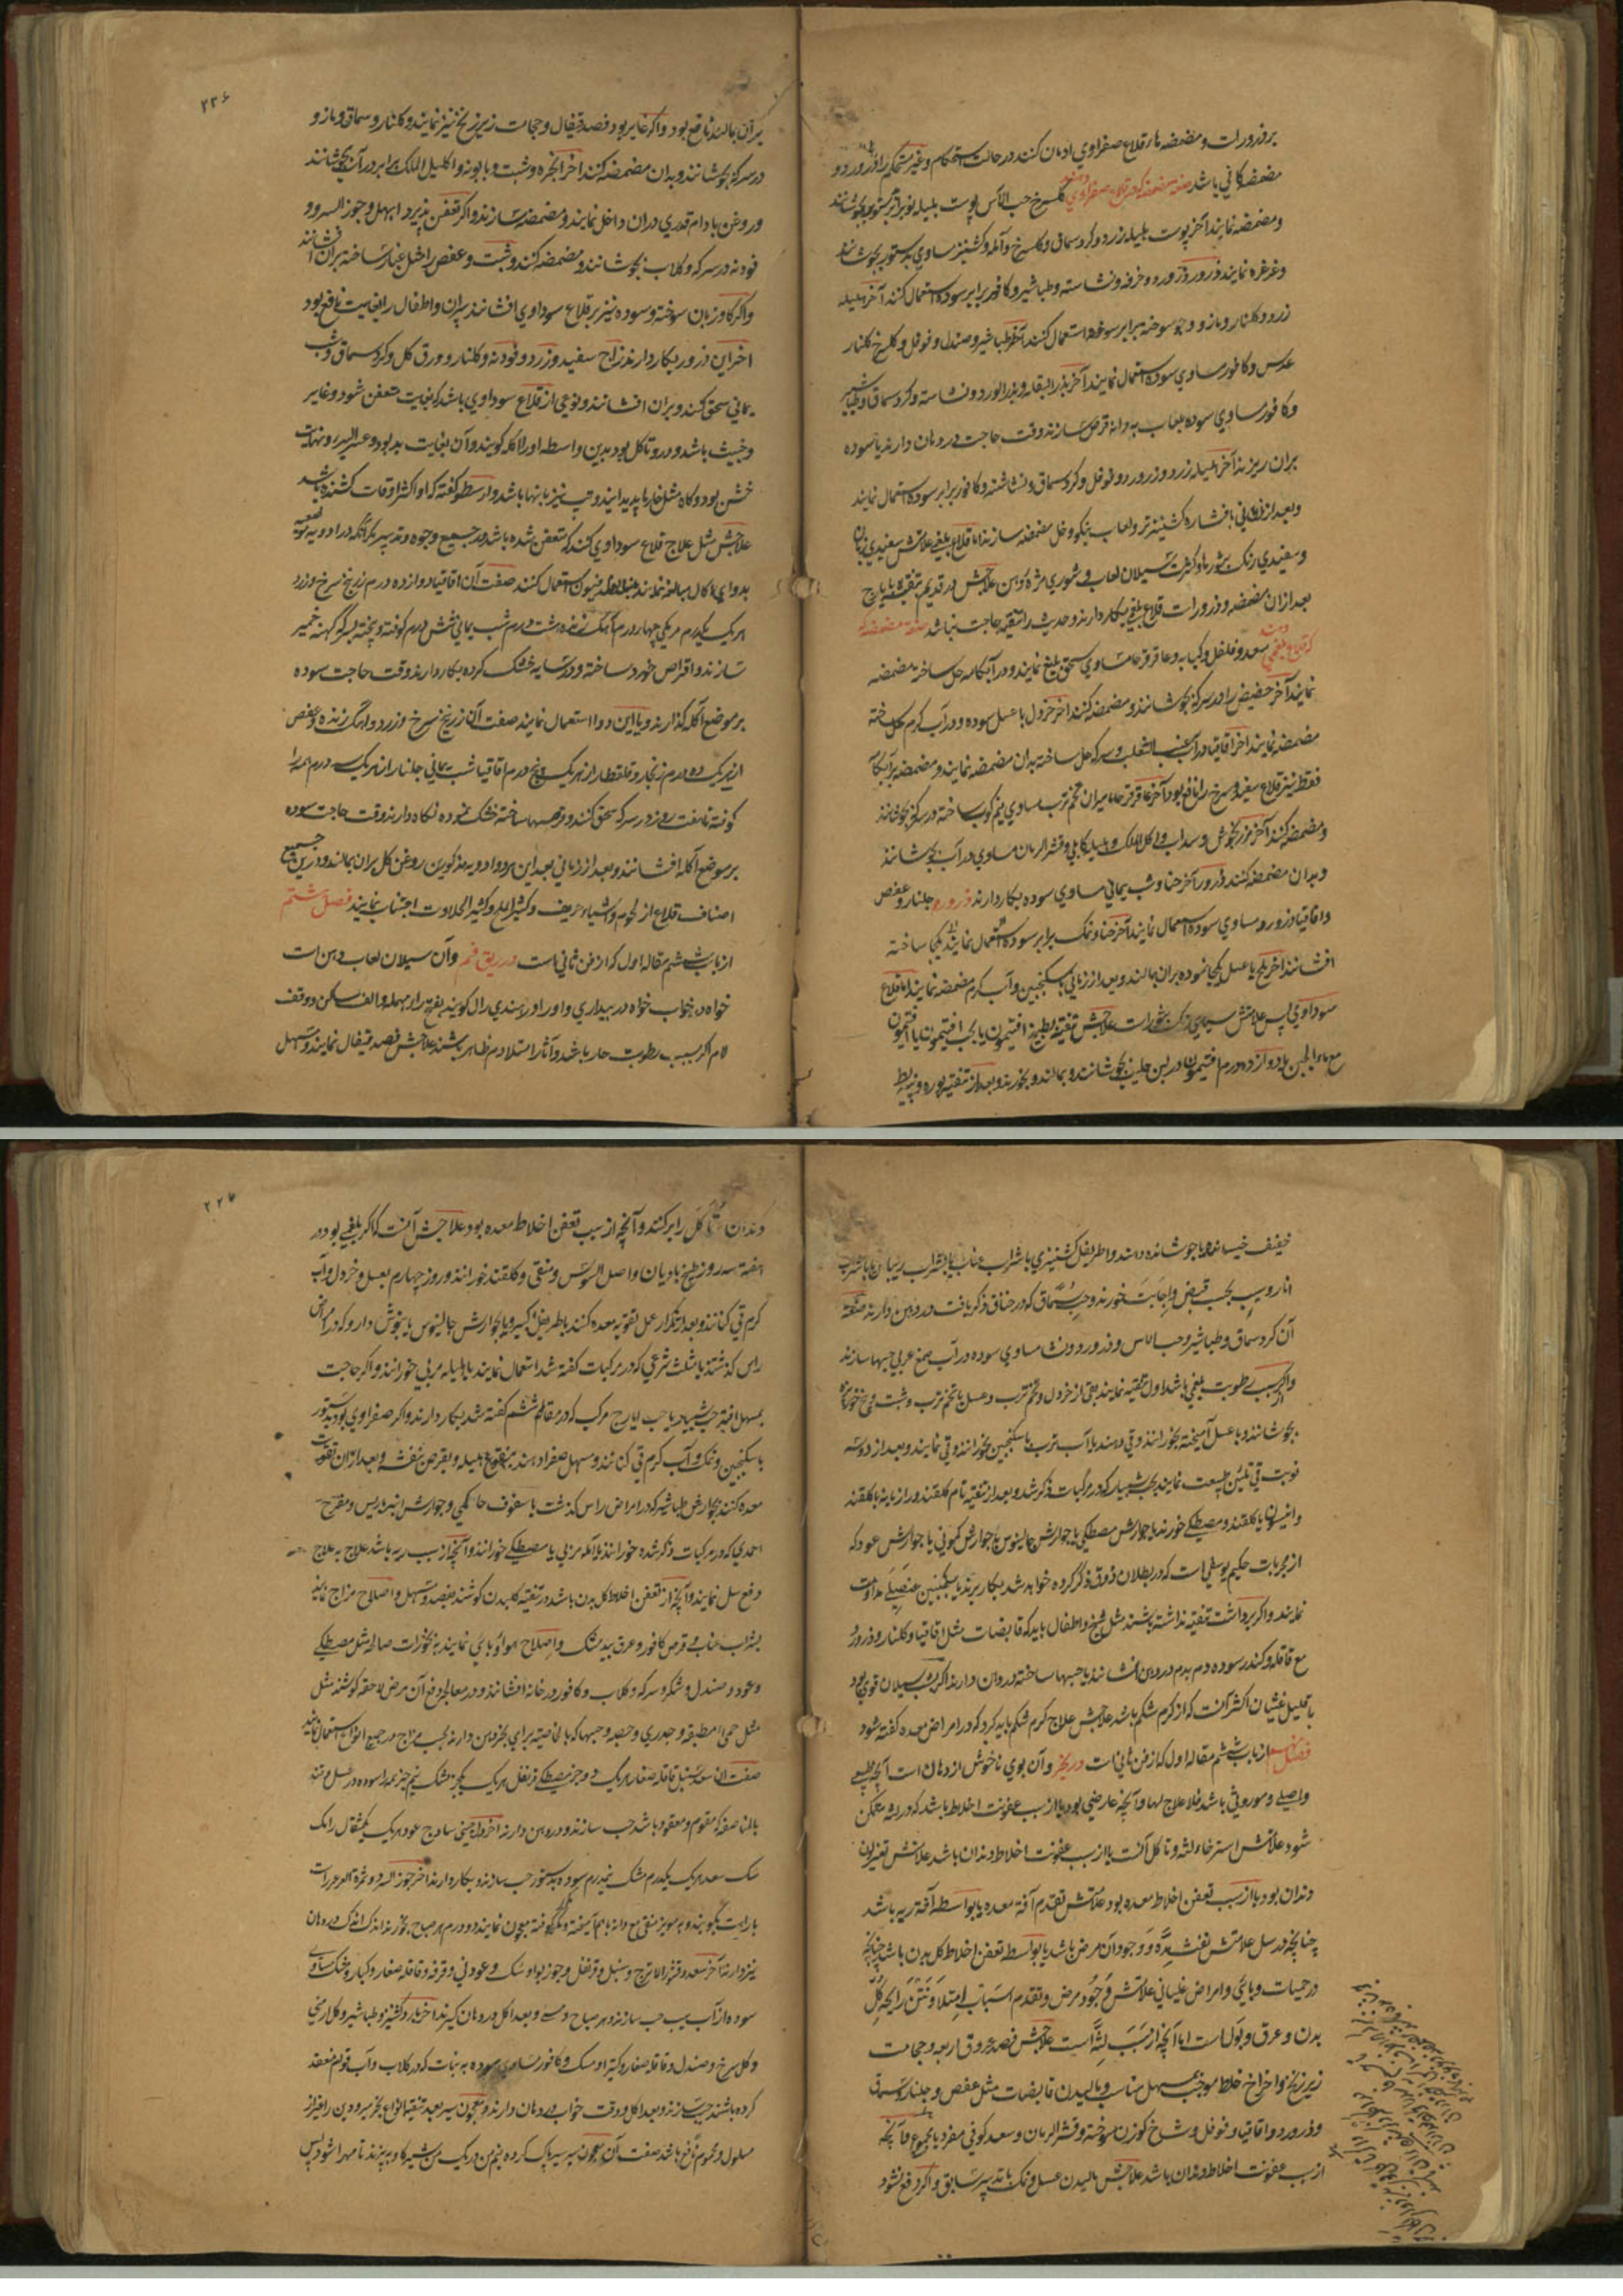 بر ذرورات و مضمضه‌ها قلاع صفراوي ادمان کنند در حالت استحکام و غیر مستحکم را ذرورد و
مضمضه کافي باشد صفت مضمضه که در قلاع صفراوي دهند گلسرخ حب الآس پوست بلیله نوبرابر بدستور بجوشانند
و مضمضه نمایند آخر پوست بلیله زرد و کرد سماق و گلسرخ و آمله و کشنیز مساوي بدستور بجوشانند
و غرغره نمایند ذرور زرورد و خرفه و نشاسته و طباشیر و کافور برابر سوده استعمال کنند آخر هلیله
زرد و گلنار و مازو و جو سوخته برابر سوده استعمال کنند آخر طباشیر و صندل و فوفل و گلسرخ گلنار
عدس و کافور مساوي سوده استعمال نمایند آخر بذر البقله و بذر الورد و نشاسته و کرد سماق و طباشیر
و کافور مساوي سوده بلعاب به دانه قرص سازند وقت حاجت در دهان دارند یا سوده
بران ریزند آخر هلیله زرد و زرورد و فوفل و کرد سماق و نشاسته و کافور برابر سوده استعمال نمایند
و بعد از زماني بافشاره کشنیز تر و لعاب بنکو و خل مضمضه سازند اما قلاع بلغمي علامتش سفیدي زبان
و سفیدي رنگ بثورها و کثرت سیلان لعاب و شوري مزه دهن علاجش در قدیم تنقیه بایارج
بعد ازان مضمضه و ذرورات قلاع بلغمي بکار دارند و حدیث را تنقیه حاجت نباشد صفت مضمضه که
در قلاع بلغمي دهند سعد و فلفل و کبابه و عاقرقرحا مساوي سحق بلیغ نمایند و در آبکامه حل ساخته مضمضه
نمایند آخر حضض را در سرکه بجوشانند و مضمضه کنند آخر خردل با عسل سوده و در آب گرم حل ساخته
مضمضه نمایند آخر اقاقیا در آب عنب الثعلب و سرکه حل ساخته بدان مضمضه نمایند و مضمضه بر آبکامه
فقط نیز قلاع سفید و سرخ را نافع بود آخر عاقرقرحا میران تخم ترب مساوي نیم کوب ساخته در سرکه بجوشانند
و مضمضه کنند آخر مرزنجوش و سداب و اکلیل الملک و هلیله کابلي و قشر الرمان مساوي در آب بجوشانند
و بدان مضمضه کنند ذرور آخر حنا و شب یماني مساوي سوده بکار دارند ذرور جلنار و عفص
و اقاقیا و زرورد مساوي سوده استعمال نمایند آخر حنا و نمک برابر سوده استعمال نمایند یکجا ساخته
افشانند آخر ملح با عسل یکجا نموده بران بمالند و بعد از زماني بسکنجبین و آب گرم مضمضه نمایند اما قلاع
سوداوي پس علامتش سیاهي رنگ بثورات علاجش تنقیه بطبیخ افتیمون یا بحب افتیمون یا افتیمون
مع ماء الجبن یا دوازده درم افتیمون در لبن حلیب بجوشانند و بمالند و بخورند و بعد از تنقیه بوره و پیه بط
۲۲۶
بر آن بمالند نافع بود و اگر غایر بود فصد قیفال و حجامت زیر زنخ نیز نمایند و گلنار و سماق و مازو
در سرکه بجوشانند و بدان مضمضه کنند آخر انجره و شبت و بابونه و اکلیل الملک برابر در آب بجوشانند
و روغن بادام قدري دران داخل نمایند و مضمضه سازند و اگر تعفن پذیرد ابهل و جوز السرو و
فودنه در سرکه و گلاب بجوشانند و مضمضه کنند و شبت و عفص را مثل غبار ساخته بران افشانند
و اگر گاوزبان سوخته و سوده نیز بر قلاع سوداوي افشانند پیران و اطفال را بغایت نافع بود
آخر این ذرور بکار دارند زاج سفید و زرد و فودنه و گلنار و ورق گل و کرد سماق و شب
یماني سحق کنند و بران افشانند و نوعي از قلاع سوداوي باشد که بغایت متعفن شود و غایر
و خبیث باشد و درو تاکل بود بدین واسطه اورا اکله گویند و آن بغایت بد بود و عسر البرء و نهایت
خشن بود و گاه مثل خارها پدید آیند و تب نیز با اینها باشد و ارسطو گفته که او اکثر اوقات کشنده باشد
علاجش مثل علاج قلاع سوداوي کنند که متعفن شده باشد در جمیع وجوه و تدبیر مگر آنکه در ادویه موضعیه
بدواي اکال مبالغه نمایند مثلا فلدفیون استعمال کنند صفت آن اقاقیا دوازده درم زرنیخ سرخ و زرد
هر یک یکدرم مر یکي چهار درم آهک زنده هشت درم شب یماني شش درم کوفته و پخته بسرکه کهنه خمیر
سازند و اقراص خورد ساخته و در سایه خشک کرده بکار دارند وقت حاجت سوده
بر موضع اکله گذارند و یا این دوا استعمال نمایند صفت آن زرنیخ سرخ و زرد و آهک زنده و عفص
از هر یک ده درم زنجار و قلقطار از هر یک پنج درم اقاقیا شب یماني جلنار از هر یک سه درم همه را
کوفته تا هفت روز در سرکه سحق کنند و قرصها ساخته خشک نموده نگاه دارند وقت حاجت سوده
بر موضع آکله افشانند و بعد از زماني بعد این هر دو ادویه مذکورین روغن گل بران بمالند و درین جمیع
اصناف قلاع از لحوم و اشیاء حریف و کثیر الملح و کثیر الحلاوت اجتناب نمایند فصل هشتم
از باب ششم مقاله اول که از فن ثاني است در ریق فم و آن سیلان لعاب دهن است
خواه در خواب خواه در بیداري و اورا در هندي رال گویند بفتح راء مهمله و الف ساکن و وقف
لام اگر بسبب رطوبت حار باشد و آثار امتلاء دم ظاهر باشند علاجش فصد قیفال نمایند و مسهل
خفیف خیسانده یا جوشانده دهند و اطریفل کشنیزي با شراب عناب یا بشراب ریباس یا بشراب
انار و سیب بحسب قبض و اجابت خورند و حب سماق که در خناق ذکر یافت در دهن دارند صفت
آن کرد سماق و طباشیر و حب الآس و زرورد و نشا مساوي سوده در آب صمغ عربي حبها سازند
و اگر بسبب رطوبت بلغمي باشد اول تنقیه نمایند بقي از خردل و تخم ترب و عسل یا تخم ترب و شبت و بیخ خربزه
بجوشانند و با عسل آمیخته بخورانند و قي دهند یا آب ترب با سکنجبین بخورانند و قي نمایند و بعد از دو سه
نوبت قي تلیین طبیعت نمایند بحب شبیار که در مرکبات ذکر شد و بعد از تنقیه تام گلقند و رازیانه یا گلقند
و انیسون یا گلقند و مصطکي خورند یا جوارش مصطکي یا جوارش جالینوس یا جوارش کموني یا جوارش عود که
از مجربات حکیم یوسفي است که در بطلان ذوق ذکر کرده خواهد شد بکار برند یا سکنجبین عنصلي مداومت
نمایند و اگر برداشت تنقیه نداشته باشند مثل شیخ و اطفال باید که قابضات مثل اقاقیا و گلنار و زرورد
مع قاقله و کندر سوده دم بدم در دهن افشانند یا حبها ساخته در دهان دارند اگر بدین سیلان قوي بود
با قلیل غثیان اکثر آنست که از کرم شکم باشد علاجش علاج کرم شکم باید کرد که در امراض معده گفته شود
فصل نهم از باب ششم مقاله اول که از فن ثاني است در بخر و آن بوي ناخوش از دهان است آنچه طبیعي
و اصلي و موروثي باشد فلا علاج لها و آنچه عارضي بود یا از سبب عفونت اخلاط باشد که در لثه متمکن
شود علامتش استرخاء لثه و تاکل آنست یا از سبب عفونت اخلاط دندان باشد علامتش تغیر لون
دندان بود یا از سبب تعفن اخلاط معده بود علامتش تقدم آفة معده یا بواسطه آفة ریه باشد
چنانچه در سل علامتش نفث مده و وجود آن مرض باشد یا بواسطه تعفن اخلاط کل بدن باشد چنانچه
در حمیات وبایي و امراض غلیاني علامتش وجود مرض و تقدم اسباب امتلا و نتن رایحه کل
بدن و عرق و بول است اما آنچه از سبب لثه است علاجش فصد عروق اربعه و حجامت
زیر زنخ و اخراج خلط موجب بمسهل مناسب و مالیدن قابضات مثل عفص و جلنار و سماق
و زرورد و اقاقیا و فوفل و شاخ گوزن سوخته و قشر الرمان و سعد کوفي مفرد یا مجموع و آنچه
از سبب عفونت اخلاط دندان باشد علاجش مالیدن عسل و نمک با تدبیر سابق و اگر دفع نشود
۲۲۷
دندان تاکل را بر کنند و آنچه از سبب تعفن اخلاط معده بود علاجش آنست که اگر بلغمي بود در
هفته سه روز طبیخ بادیان و اصل السوس و منقي و گلقند خورانند و روز چهارم بعسل و خردل و آب
گرم قي کنانند و بعد از تکرار عمل تقویه معده کنند باطریفل کبیر و یا بجوارش جالینوس یا بنوش دارو که در امراض
راس گذشتند یا مثلث شرعي که در مرکبات گفته شد استعمال نمایند یا هلیله مربي خورانند و اگر حاجت
بمسهل افتد حب شبیار یا حب ایارج مرکب که در مقاله ششم گفته شد بکار دارند و اگر صفراوي بود بدستور
با سکنجبین و نمک و آب گرم قي کنانند و مسهل صفرا دهند بنقوع هلیله و بقرص بنفشه و بعد ازان تقویت
معده کنند بجوارش طباشیر که در امراض راس گذشت یا سفوف حاکمي و جوارش انبرباریس و مفرح
احمدي که در مرکبات ذکر شده خورانند یا آمله مربي یا مصطکي خورانند و آنچه از سبب ریه باشد علاج به علاج
دفع سل نمایند و آنچه از تعفن اخلاط کل بدن باشد در تنقیه کل بدن کوشند بفصد و مسهل و اصلاح مزاج نمایند
بشراب عناب و قرص کافور و عرق بید مشک و اصلاح هواء وبایي نمایند به بخورات صالحه مثل مصطکي
و عود و صندل و شکر و سرکه و گلاب و کافور در خانه افشانند و در معالجه و دفع آن مرض لاحقه کوشند مثل
مثل حمي مطبقه و جدري و حصبه و حبها که بالخاصیه براي بخر دهن دارند بحسب مزاج در جمیع انواع استعمال نمایند
صفت آن سعد سنبل قاقله صغار هر یک دو جزو مصطکي قرنفل هر یک یکجزو مشک نیم جزو همه را سوده در عسل و قند
بالمناصفه که مقوم و معقود باشد حب سازند و در دهن دارند آخر دارچیني ساذج عود هر یک یکمثقال رامک
سک سعد هر یک یکدرم مشک نیمدرم سوده بدستور حب سازند و بکار دارند آخر جوز السرو و ثمرة العرعر است
بارایت بکوبند و به مویز منقي مع دانه باهم آمیخته و کوفته معجون نمایند دو درم هر صباح بخورند اندک اندک در دهان
نیز دارند آخر سعد و قشور الاترج و سنبل و قرنفل و جوز بوا و سک و عود ني و قرفه و قاقله صغار و کبار و مشک مساوي
سوده از آب سیب حب سازند و هر صباح و مسا و بعد اکل در دهان گیرند آخر بارد گشنیز و طباشیر و گل ارمني
و گل سرخ و صندل و قاقله صغار و کتیرا و مسک و کافور مساوي سوده به نبات که در گلاب و آب قوام منعقد
کرده باشند حب سازند و بعد اکل و وقت خواب در دهان دارند و معجون سیر بعد تنقیه انواع بخر مبرودین را غیر از
مسلول و محموم نافع باشد صفت آن معجون سیر سیر پاک کرده نیم من در یک من شیر گاو به پزند تا مهرا شود پس